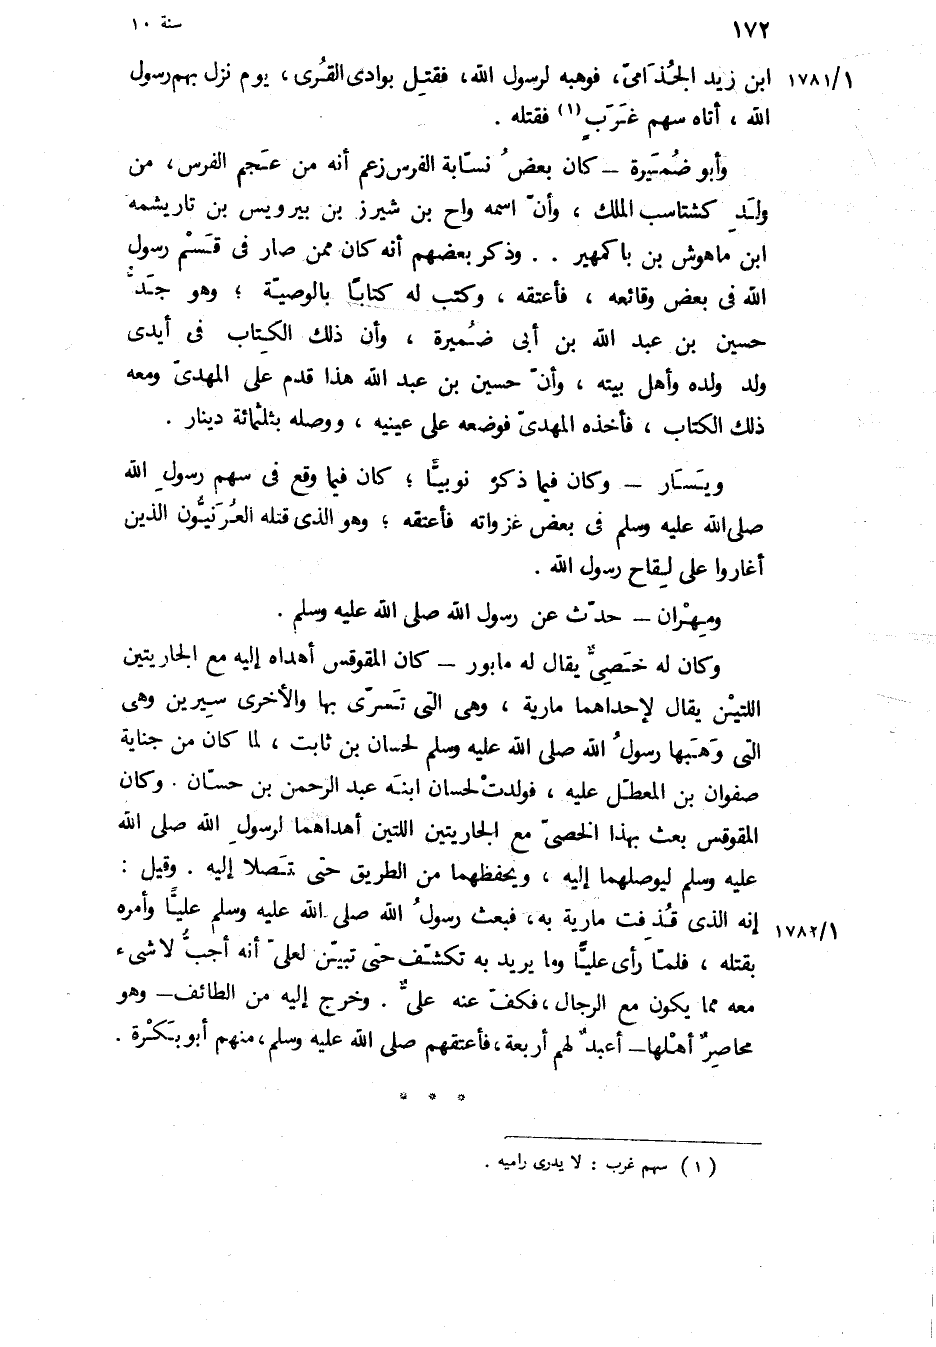 ١٧٢ سنة ١٠
١٧٨١/١ ابن زيد الجُذَامىّ، فوهبه لرسول الله، فقُتِل بوادى القُرى، يوم نزل بهم رسول
الله ، أتاه سهم غَرَبٍ (١) فقتله .
وأبو ضُمَيرة – كان بعضُ نسّابة الفرس زعم أنه من عَجم الفرس، من
ولَدِ كشتاسب الملك ، وأنّ اسمه واح بن شيرز بن بيرويس بن تاريشمه
ابن ماهوش بن باكمهير . . وذكر بعضهم أنه كان ممن صار فى قَسْم رسول
الله فى بعض وقائعه ، فأعتقه ، وكتب له كتابًا بالوصيّة ؛ وهو جَدُّ
حسين بن عبد الله بن أبى ضُميرة ، وأن ذلك الكِتاب فى أيدى
ولد ولده وأهل بيته ، وأنّ حسين بن عبد الله هذا قدم على المهدىّ ومعه
ذلك الكتاب ، فأخذه المهدىّ فوضعه على عينيه ، ووصله بثلثمائة دينار .
ويَسَار – وكان فيما ذكرَ نوبيًّا ؛ كان فيما وقع فى سهم رسولِ الله
صلى الله عليه وسلم فى بعض غزواته فأعتقه ؛ وهو الذى قتله العُرَنيُّون الذين
أغاروا على لِقاح رسول الله .
ومِهْران – حدّث عن رسول الله صلى الله عليه وسلم .
وكان له خَصِىٌّ يقال له مابور – كان المقوقس أهداه إليه مع الجاريتين
اللتيْن يقال لإحداهما مارية ، وهى التى تَسرّى بها والأخرى سِيرين وهى
التى وَهَبها رسولُ الله صلى الله عليه وسلم لحسان بن ثابت ، لما كان من جناية
صفوان بن المعطّل عليه ، فولدتْ لحسان ابنَه عبد الرحمن بن حسّان . وكان
المقوقس بعث بهذا الخصىّ مع الجاريتين اللتين أهداهما لرسولِ الله صلى الله
عليه وسلم ليوصلهما إليه ، ويحفظهما من الطريق حتى تَصلا إليه . وقيل :
١٧٨٢/١ إنه الذى قُذِفت مارية به، فبعث رسولُ الله صلى الله عليه وسلم عليًّا وأمره
بقتله ، فلمّا رأى عليًّا وما يريد به تكشّف حتى تبيّن لعلىّ أنه أجبُّ لا شىء
معه مما يكون مع الرجال، فكفّ عنه علىٌّ . وخرج إليه من الطائف – وهو
محاصِرٌ أهْلها – أعبدٌ لهم أربعة، فأعتقهم صلى الله عليه وسلم، منهم أبو بَكْرة .
* * *
(١) سهم غرب : لا يدرى راميه .